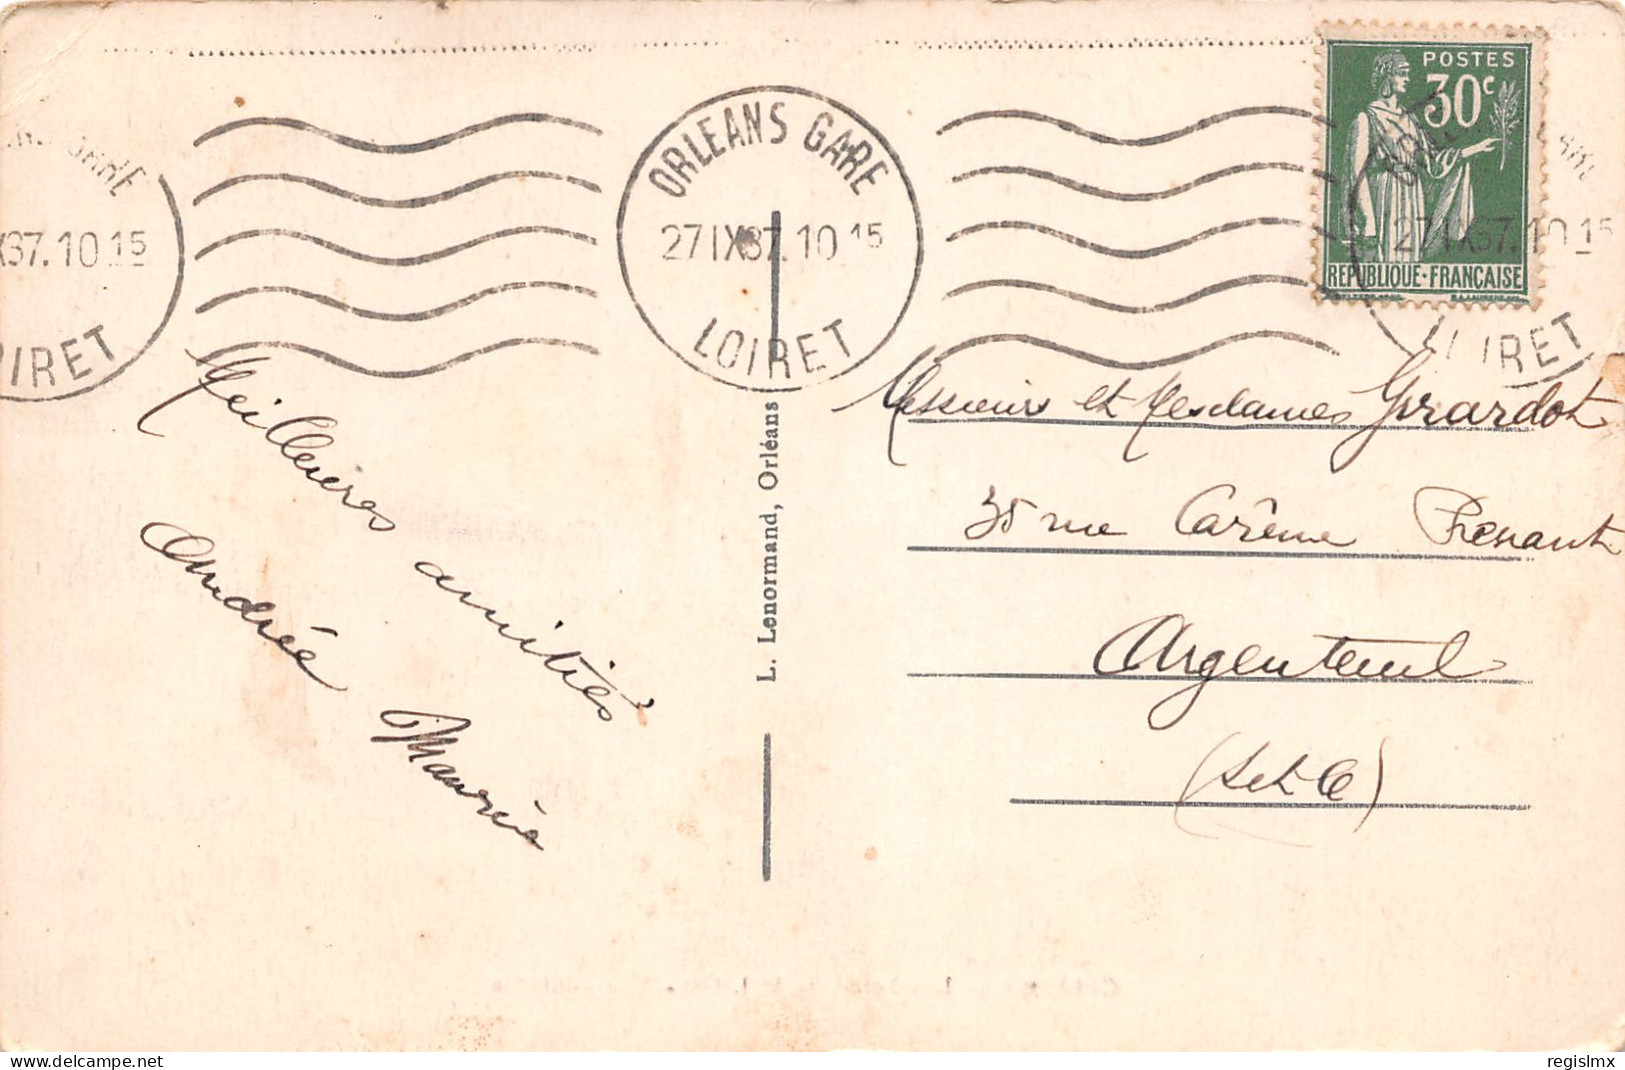 ORLEANS GARE
27 IX 37. 10 15
LOIRET
X37. 10 15
OIRET
GARE
POSTES
30c
REPUBLIQUE·FRANCAISE
27 IX 37. 10 15
IRET
Meilleures amitiés
Andrée Maurice
L. Lenormand, Orléans
Messieurs et Mesdames Girardot
35 rue Carême Prenant
Argenteuil
(S et O)
regislmx